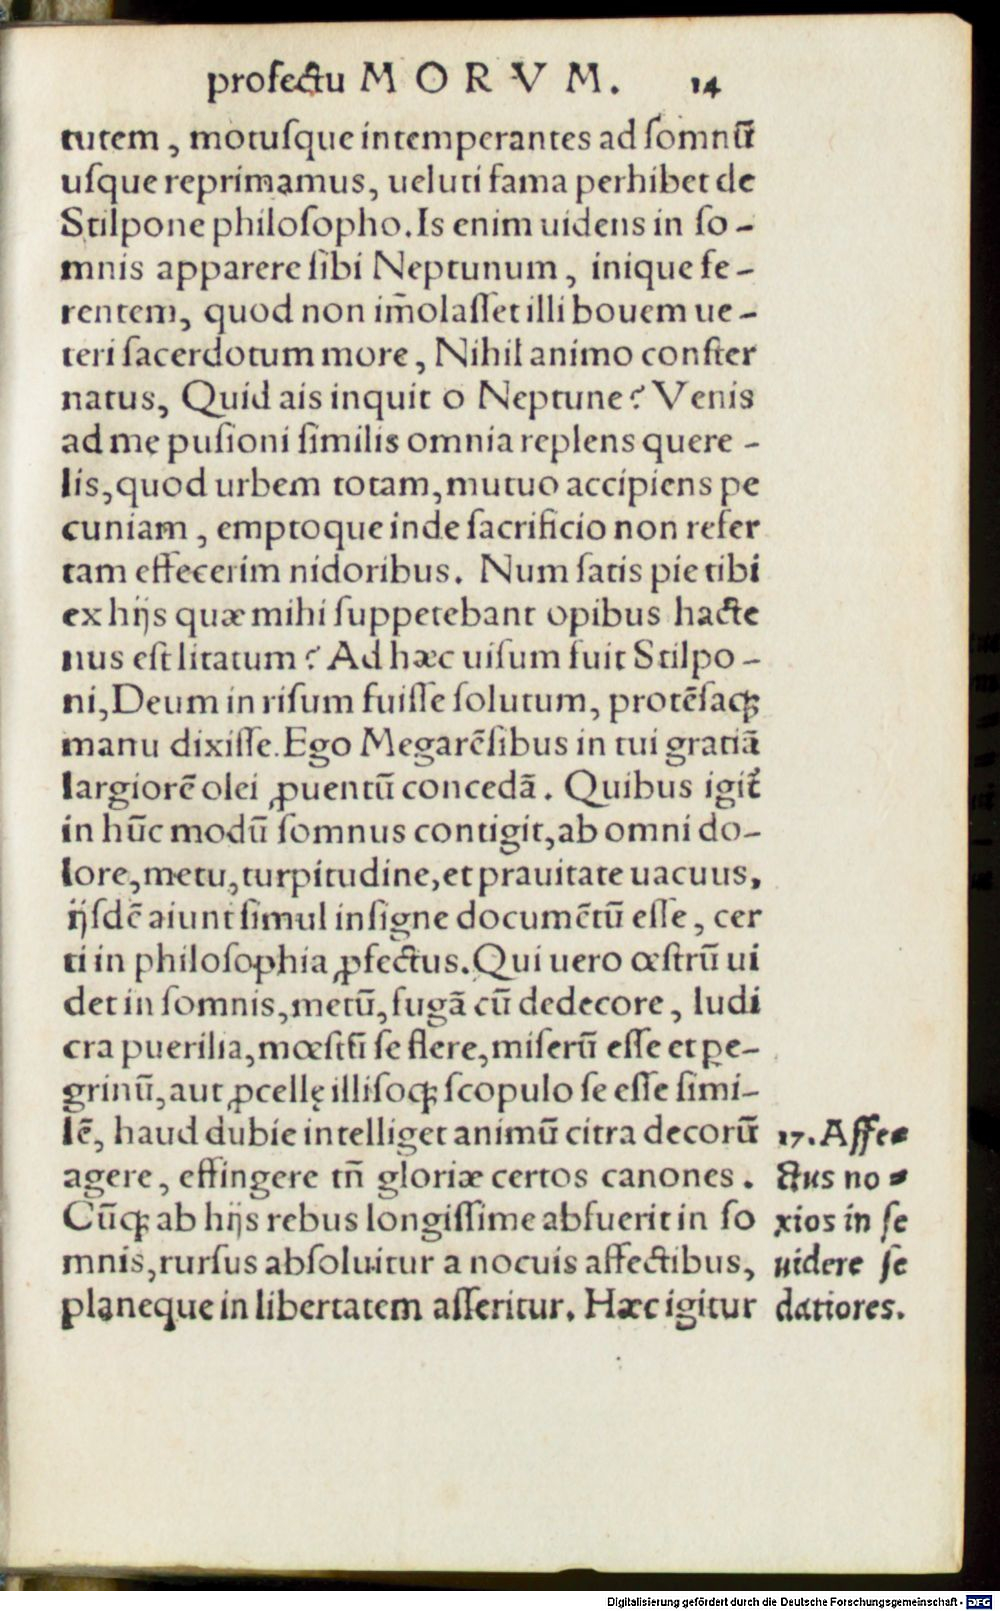 profectu MORVM. 14
tutem, motuſque intemperantes ad ſomnū
uſque reprimamus, ueluti fama perhibet de
Stilpone philoſopho. Is enim uidens in ſo-
mnis apparere ſibi Neptunum, inique fe-
rentem, quod non im̄olaſſet illi bouem ue-
teri ſacerdotum more, Nihil animo conſter
natus, Quid ais inquit o Neptune? Venis
ad me puſioni ſimilis omnia replens quere-
lis, quod urbem totam, mutuo accipiens pe
cuniam, emptoque inde ſacrificio non refer
tam effecerim nidoribus. Num ſatis pie tibi
ex hijs quæ mihi ſuppetebant opibus hacte
nus eſt litatum? Ad hæc uiſum fuit Stilpo-
ni, Deum in riſum fuiſſe ſolutum, protēſaq;
manu dixiſſe. Ego Megarēſibus in tui gratiā
largiorē olei ꝓuentū concedā. Quibus igit᷑
in hūc modū ſomnus contigit, ab omni do-
lore, metu, turpitudine, et prauitate uacuus,
ijſdē aiunt ſimul inſigne documētū eſſe, cer
ti in philoſophia ꝓfectus. Qui uero œſtrū ui
det in ſomnis, metū, fugā cū dedecore, ludi
cra puerilia, mœſtū ſe flere, miſerū eſſe et ꝑe-
grinū, aut ꝓcellę illiſoq; ſcopulo ſe eſſe ſimi-
lē, haud dubie intelliget animū citra decorū
agere, effingere tn̄ gloriæ certos canones.
Cūq; ab hijs rebus longiſſime abfuerit in ſo
mnis, rurſus abſoluitur a nocuis affectibus,
planeque in libertatem aſſeritur. Hæc igitur
17. Affe-
ctus no-
xios in ſe
uidere ſe
datiores.
Digitalisierung gefördert durch die Deutsche Forschungsgemeinschaft - DFG